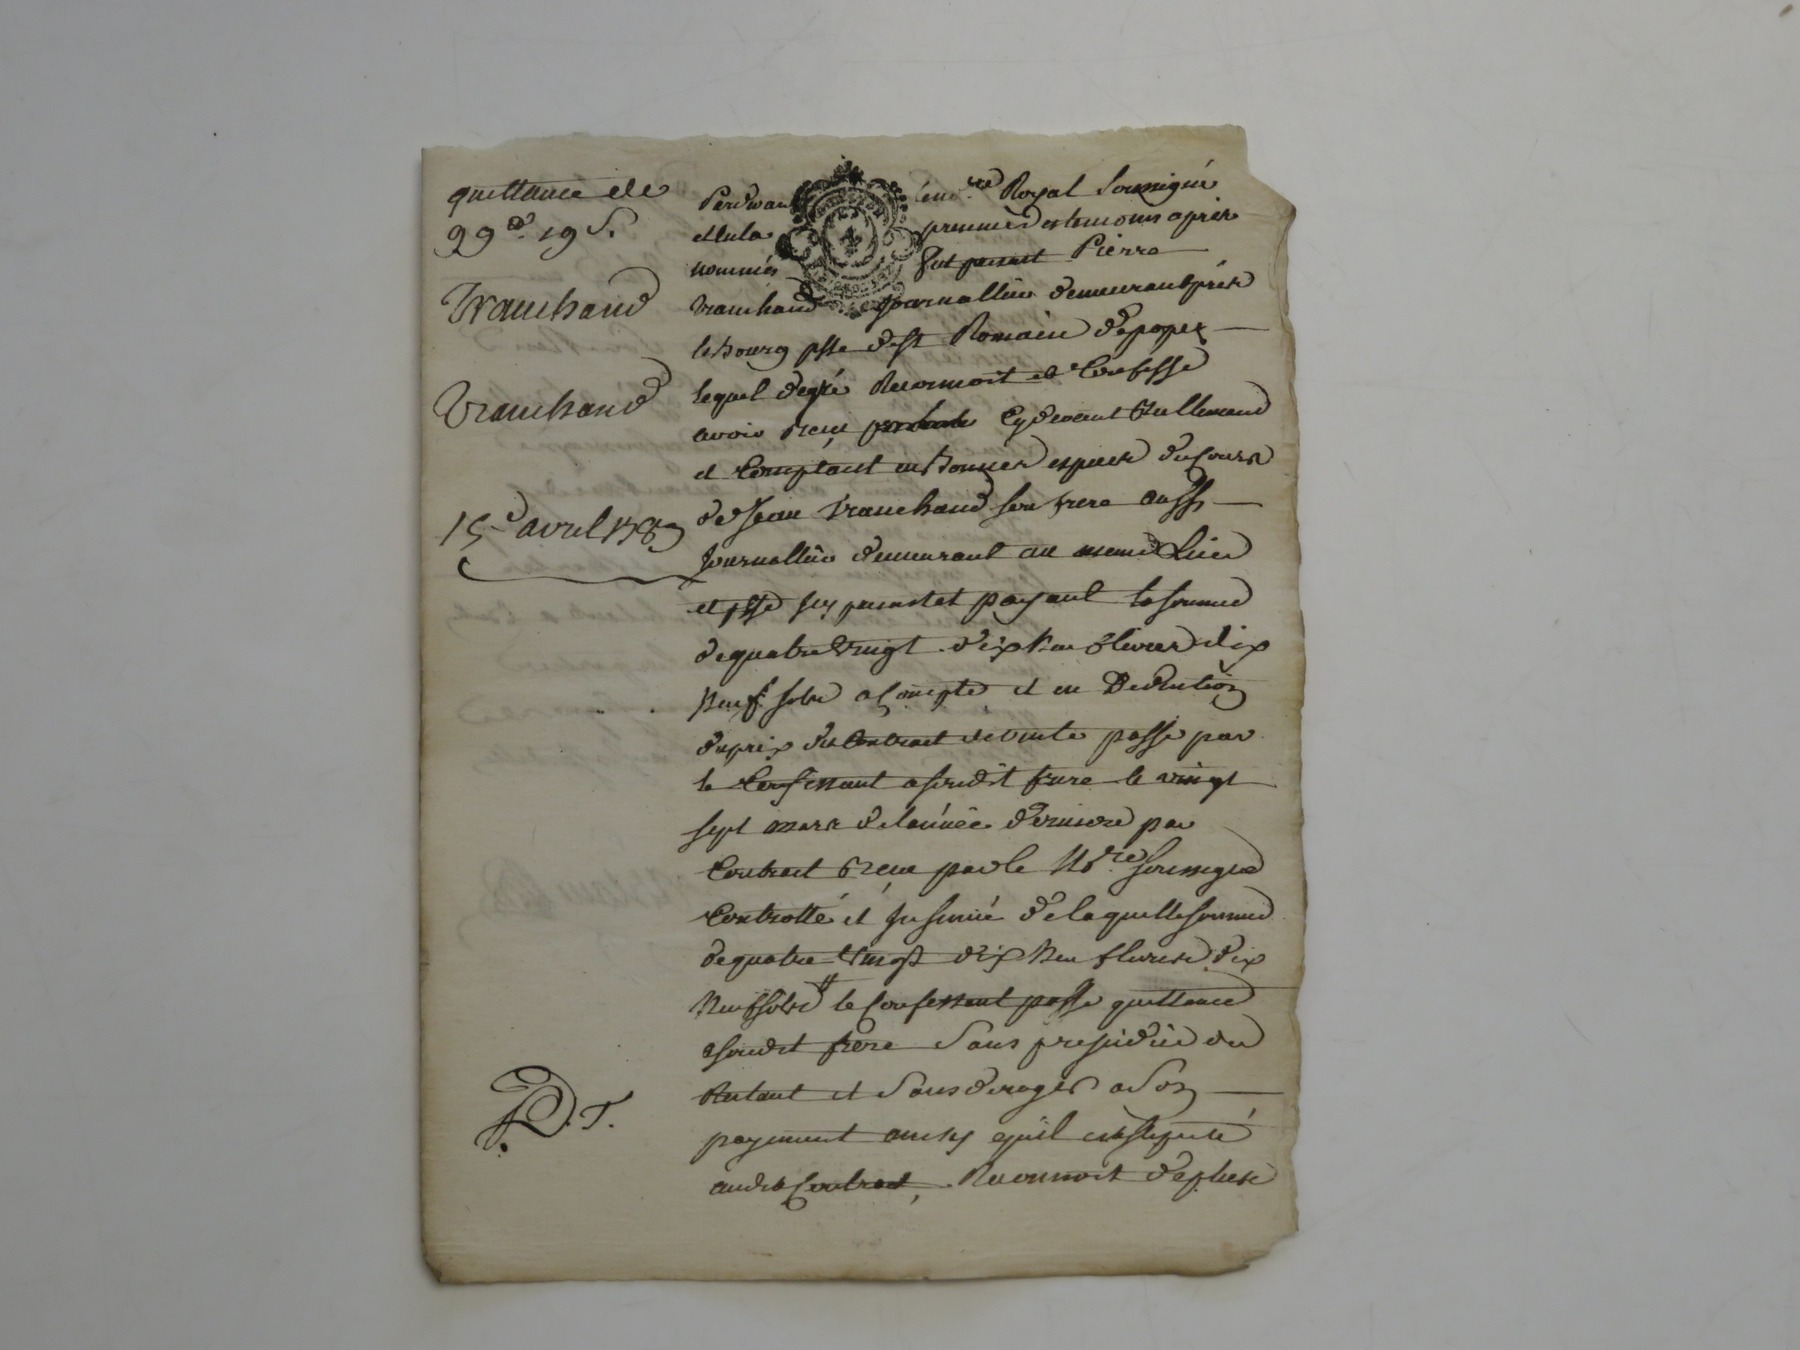 quittance de
99# 19 s.
Tranchand
Tranchand
15 avril 1789
Pardevant le no.re Royal Soussigné
et en la presence des temoins après
nommés fut present Pierre
Tranchand Journallier demeurant près
le bourg psse de St Romain de popez
lequel de gré Reconnoit et Confesse
avoir Reçu Cydevant Réellement
et Comptant en bonnes especes du Cours
de Jean Tranchand son frere aussi
Journallier demeurant au meme Lieu
et psse icy present et payant la somme
de quatre vingt dix neuf livres dix
Neuf sols a Compte et en Deduction
du prix du Contract de vente passé par
le Confessant a sondit frere le vingt
sept mars de l'année derniere par
Contract Reçu par le No.re soussigné
Controllé et Insinué de laquelle somme
de quatre vingt dix neuf livres dix
Neuf sols le Confessant passe quittance
a sondit frere Sans prejudice du
Restant et Sans deroger a Son
payement ainsy qu'il est stipulé
audit Contract, Reconnoit de plus
D.T.